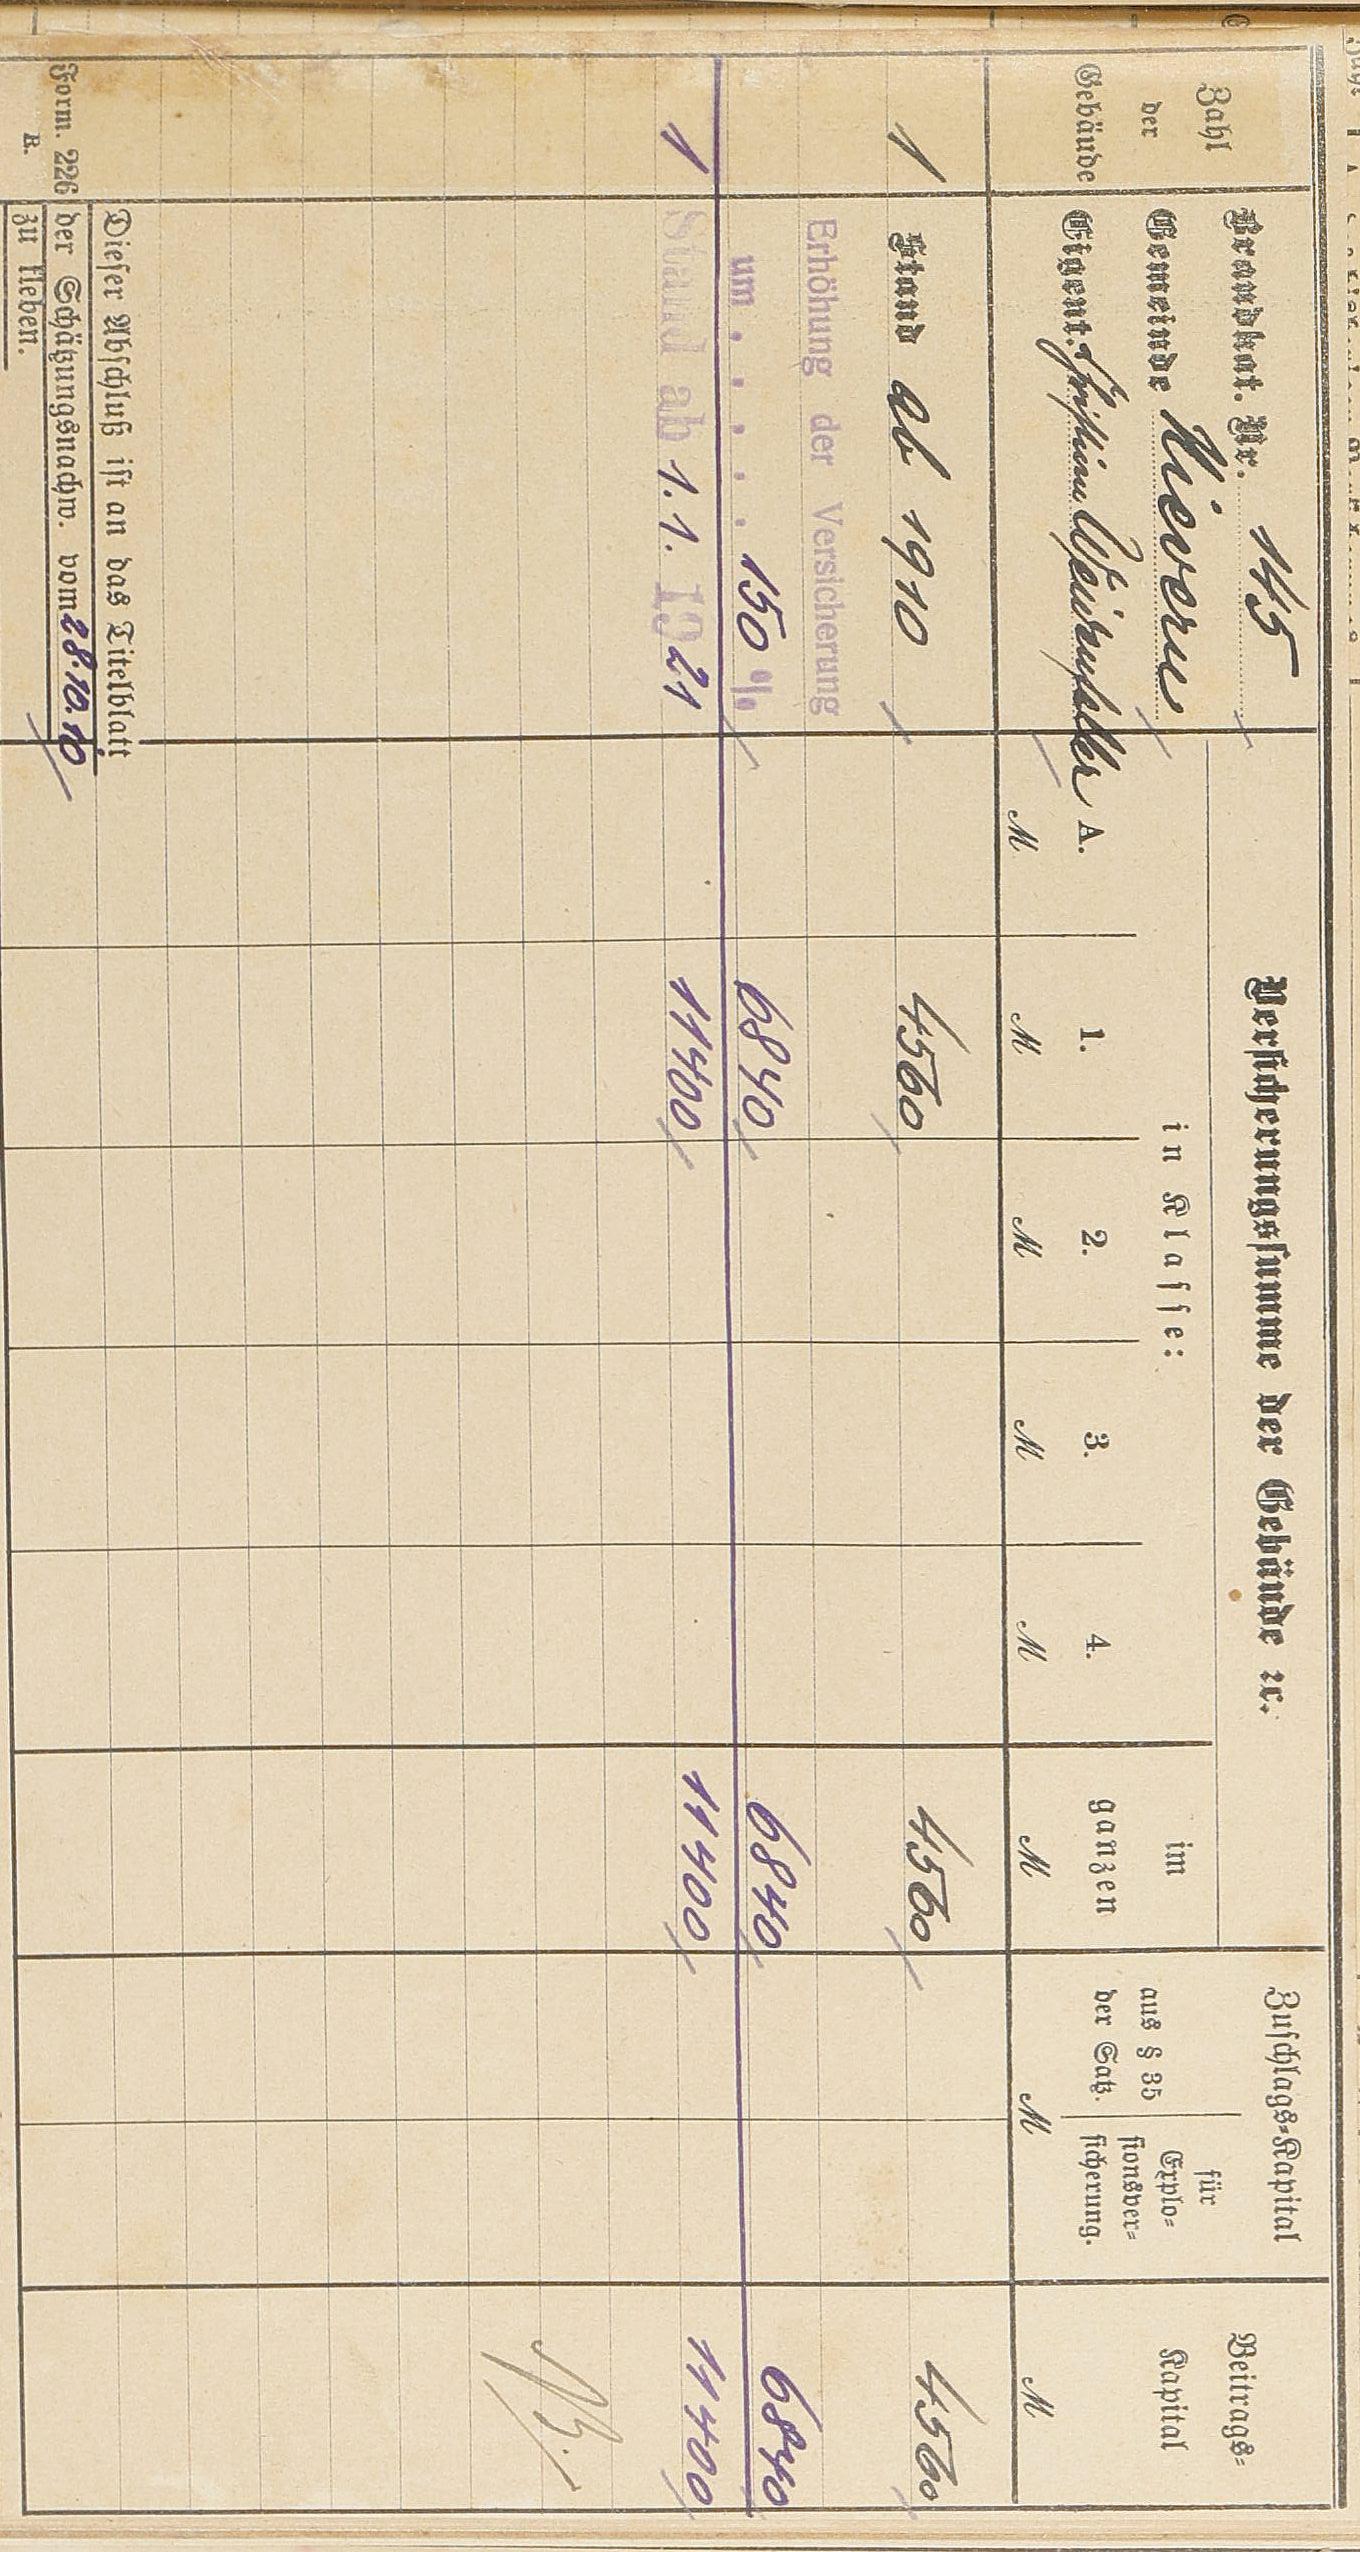 Zahl
der
Gebäude
Brandkat. Nr. 145
Gemeinde Nievern
Eigent.
Versicherungssumme der Gebäude ꝛc.
in Klasse:
A.
1.
2.
3.
4.
im
ganzen
M M M M M M
Zuschlags-Kapital
aus § 35
der Satz.
für
Explo-
sionsver-
sicherung.
M
Beitrags-
Kapital
M
1 Stand ab 1910 4560 4560 4560
Erhöhung der Versicherung
um . . . . . 150 % 6840 6840 6840
1 Stand ab 1.1. 1921 11400 11400 11400
Dieser Abschluß ist an das Titelblatt
Form. 226 der Schätzungsnachw. vom 28.10.10
B. zu kleben.